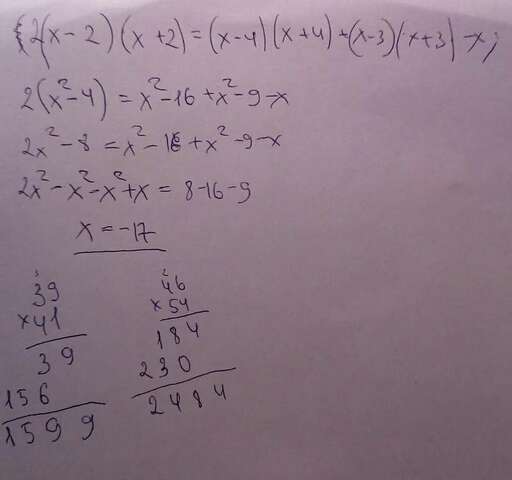 {2(x-2)(x+2)=(x-4)(x+4)+(x-3)(x+3)-x;
2(x²-4)=x²-16+x²-9-x
2x²-8=x²-16+x²-9-x
2x²-x²-x²+x=8-16-9
x=-17
39
×41
39
156
1599
2
46
×54
184
230
2484